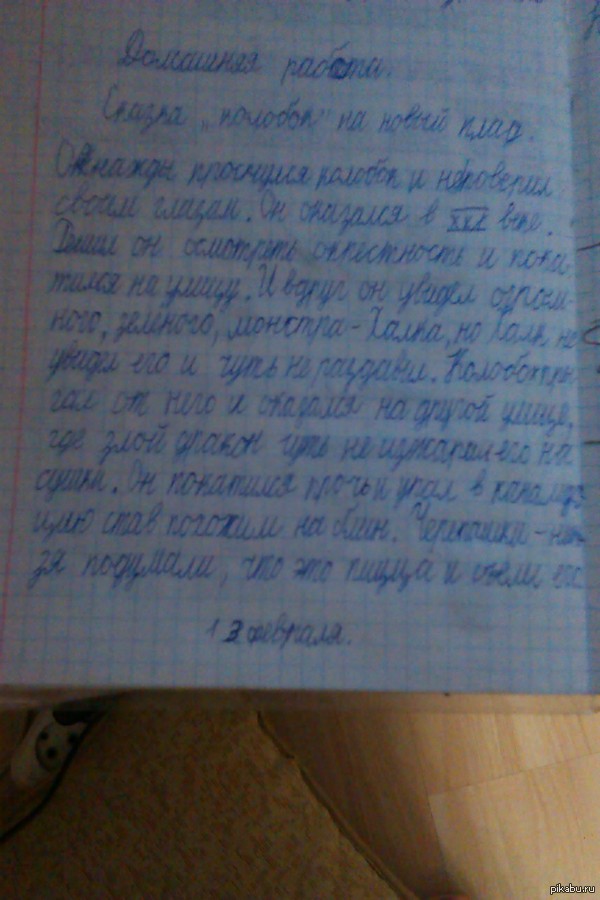 Домашняя работа.
Сказка „колобок" на новый лад.
Однажды проснулся колобок и не поверил
своим глазам. Он оказался в XXI веке.
Решил он осмотреть окрестность и пока-
тился на улицу. И вдруг он увидел огром-
ного, зелёного, монстра-Халка, но Халк не
увидел его и чуть не раздавил. Колобок
от него и оказался на другой улице,
где злой дракон чуть не изжарил его на
сушки. Он покатился прочь и упал в
став похожим на блин. Черепашки-нин-
зя подумали, что это пицца и съели его
13 февраля.
pikabu.ru